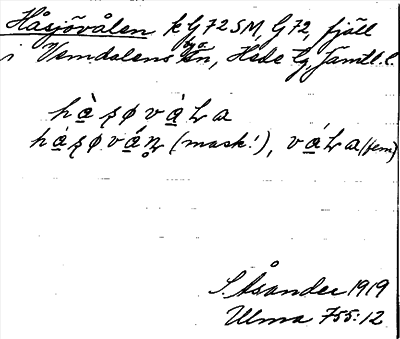 Håsjövålen k Gg 72 SM, G 72, fjäll
i Vemdalens sn, Hede tg, Jämtl. l.
hàʂøvàLa
háʂøván̥ (mask!), váLa (fem)
S. Åsander 1919
Ulma 755:12